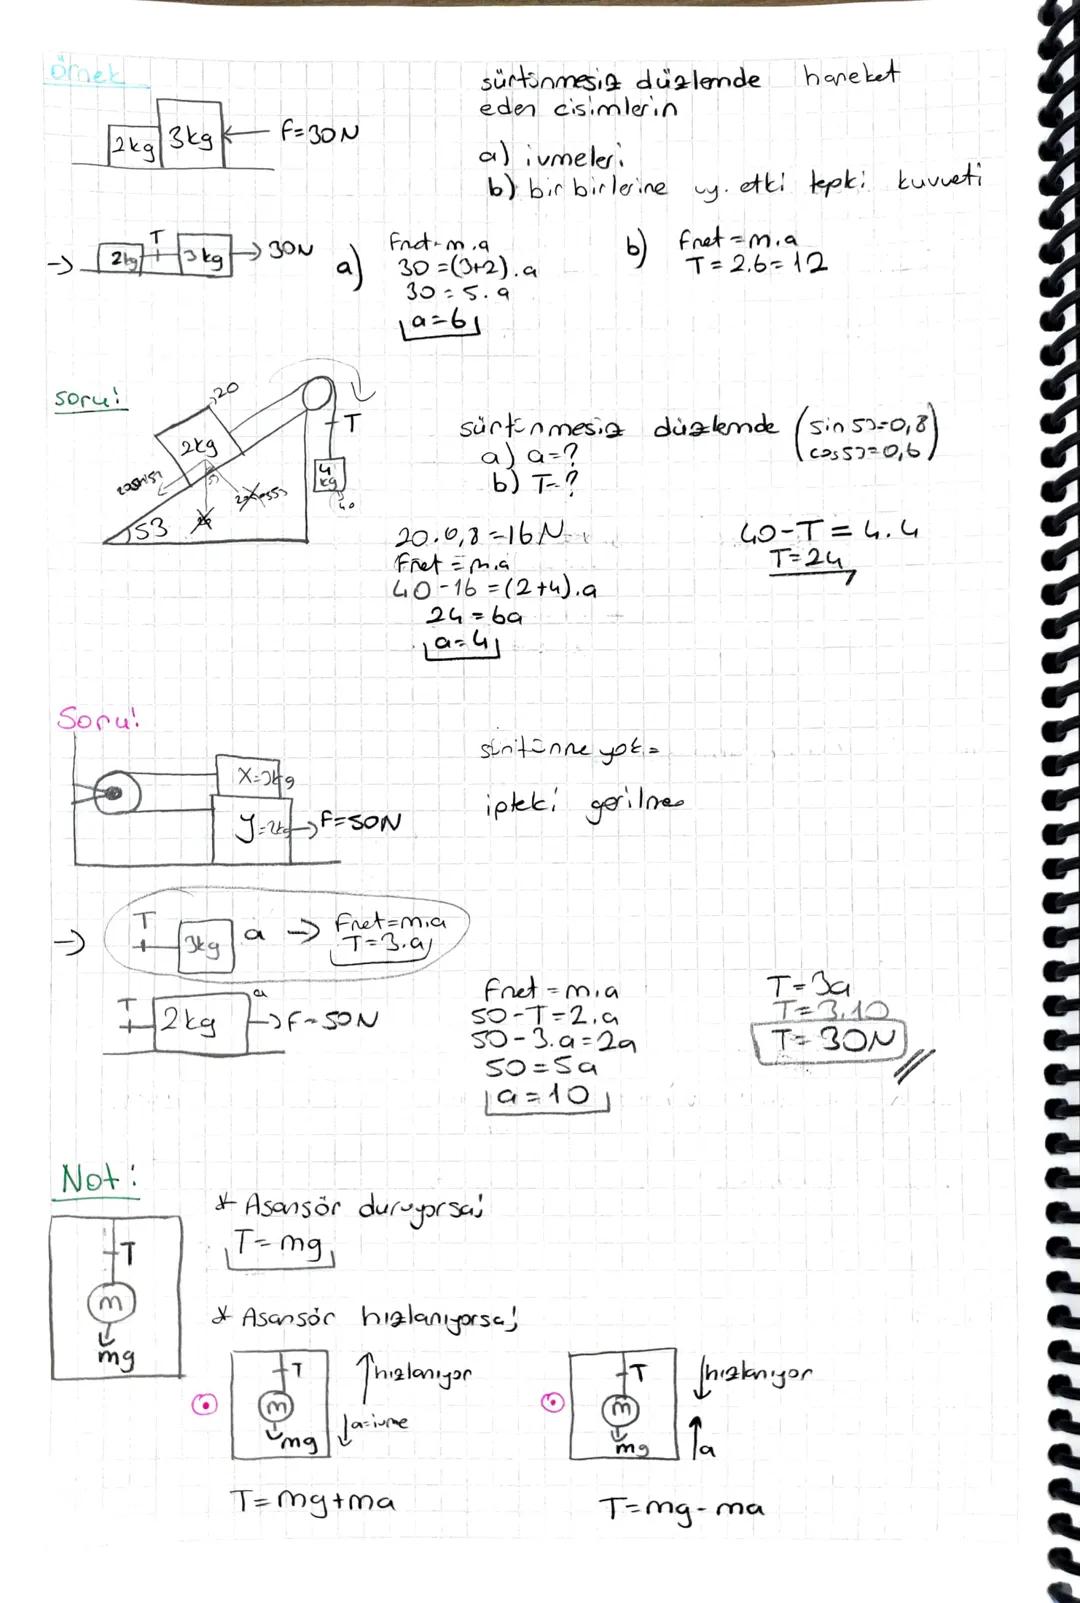 örnek
2kg 3kg F=30N
sürtünmesiz düzlemde hareket
eden cisimlerin
a) ivmeleri
b) bir birlerine uy. etki tepki kuvveti
→ 2kg T 3kg → 30N
a) Fnet=m.a
30=(3+2).a
30=5.a
a=6
b) Fnet=m.a
T=2.6=12
soru:
20
2kg
T
4 kg
40
53
sürtünmesiz düzlemde (sin53=0,8 cos53=0,6)
a) a=?
b) T=?
20.0,8=16N
Fnet=m.a
40-16=(2+4).a
24=6a
a=4
40-T=4.4
T=24
Soru:
X=3kg
Y=2kg → F=50N
sürtünme yok =
ipteki gerilme
→ T 3kg a → Fnet=m.a
T=3.a
T 2kg a → F=50N
Fnet=m.a
50-T=2.a
50-3.a=2a
50=5a
a=10
T=3a
T=3.10
T=30N
Not:
T
m
mg
* Asansör duruyorsa;
T=mg
* Asansör hızlanıyorsa;
T
m
mg
hızlanıyor
a=ivme
T=mg+ma
T
m
mg
hızlanıyor
a
T=mg-ma